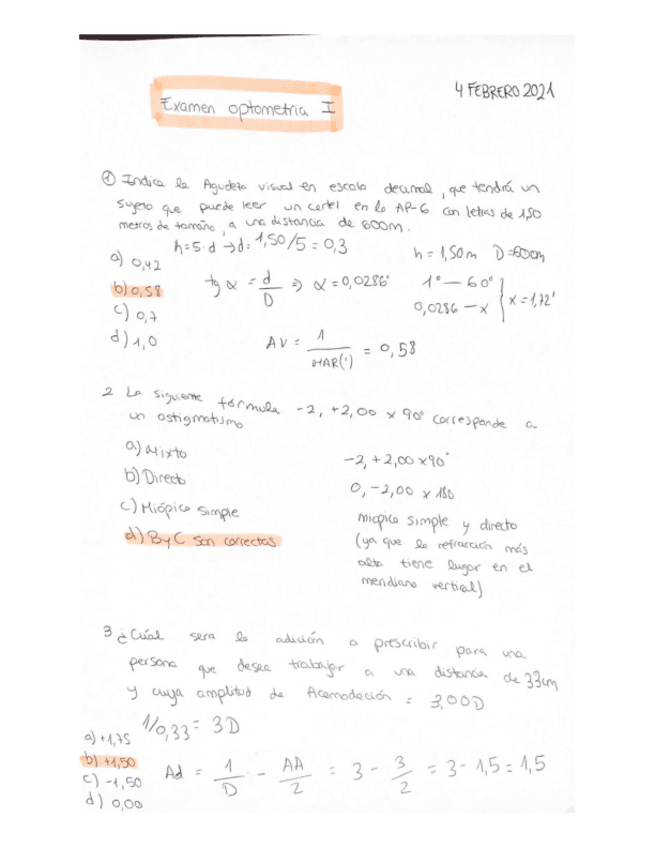 4 FEBRERO 2021
Examen optometria I
① Indica la Agudeza visual en escala decimal, que tendrá un
sujeto que puede leer un cartel en la AP-6 con letras de 1,50
metros de tamaño, a una distancia de 600m.
h=5·d → d=1,50/5 = 0,3
h = 1,50m D=600m
a) 0,42
b) 0,58
c) 0,7
d) 1,0
tg α = d/D ⇒ α = 0,0286°
1° — 60'
0,0286 — x } x = 1,72'
AV = 1/MAR(') = 0,58
2 La siguiente fórmula -2, +2,00 x 90° corresponde a
un astigmatismo
a) Mixto
b) Directo
c) Miópico simple
d) B y C son correctas
-2, +2,00 x 90°
0, -2,00 x 180
miópico simple y directo
(ya que la refracción más
alta tiene lugar en el
meridiano vertical)
3 ¿Cuál sera la adición a prescribir para una
persona que desea trabajar a una distancia de 33cm
y cuya amplitud de Acomodación = 3,00D
1/0,33 = 3D
a) +1,75
b) +1,50
c) -1,50
d) 0,00
Ad = 1/D - AA/2 = 3 - 3/2 = 3 - 1,5 = 1,5